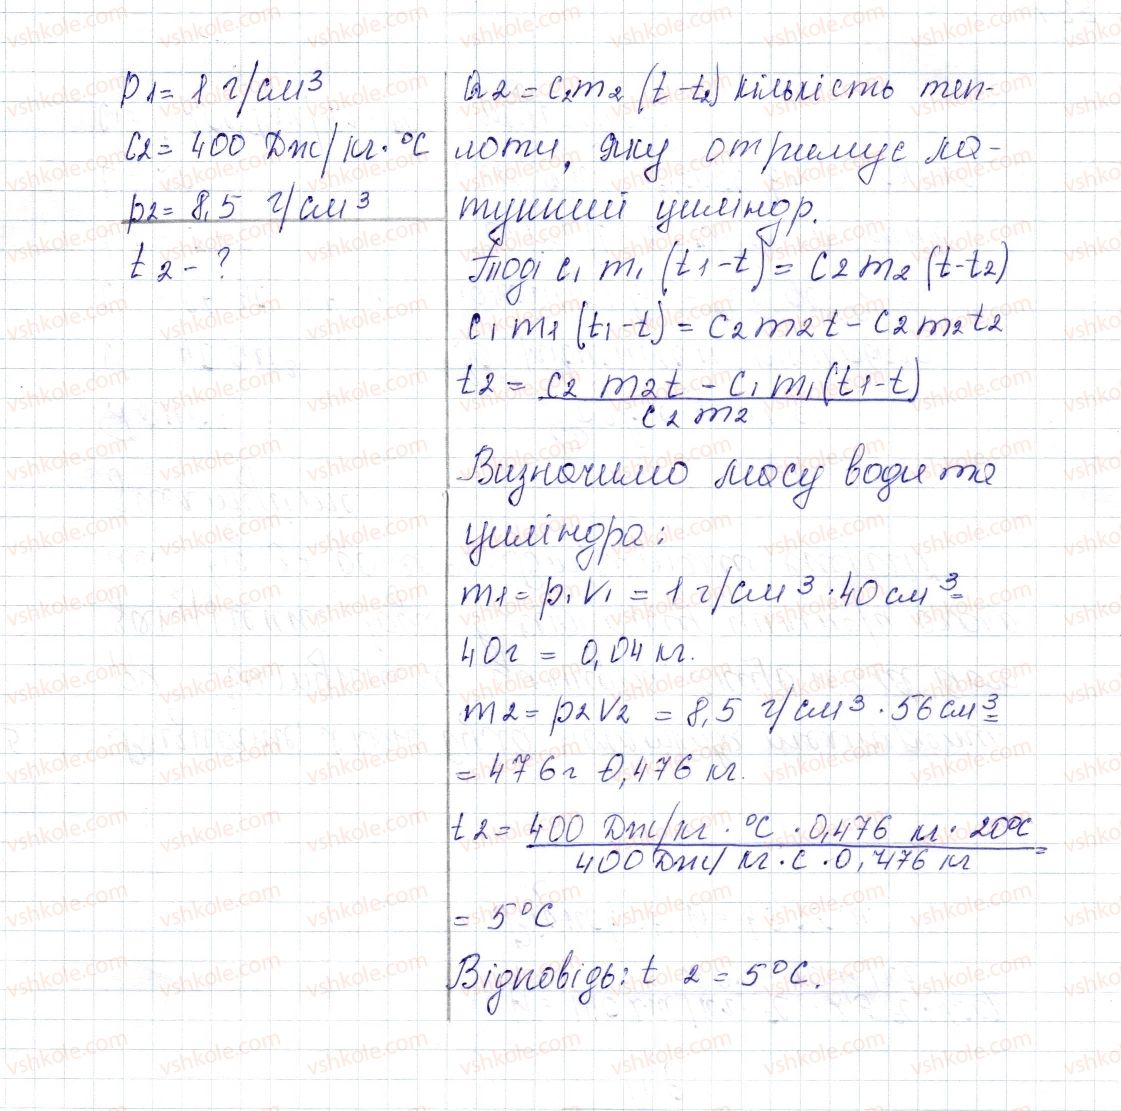 ρ1 = 1 г/см³
c2 = 400 Дж/кг·°C
ρ2 = 8,5 г/см³
t2 - ?
Q2 = c2m2 (t - t2) кількість теп-
лоти, яку отримує ла-
тунний циліндр.
Тоді c1 m1 (t1 - t) = c2 m2 (t - t2)
c1 m1 (t1 - t) = c2 m2 t - c2 m2 t2
t2 = c2 m2 t - c1 m1 (t1 - t)
c2 m2
Визначимо масу води та
циліндра:
m1 = ρ1 V1 = 1 г/см³ · 40 см³ =
40г = 0,04 кг.
m2 = ρ2 V2 = 8,5 г/см³ · 56 см³ =
= 476г 0,476 кг.
t2 = 400 Дж/кг · °C · 0,476 кг · 20°C
400 Дж/кг · C · 0,476 кг =
= 5°C
Відповідь: t 2 = 5°C.